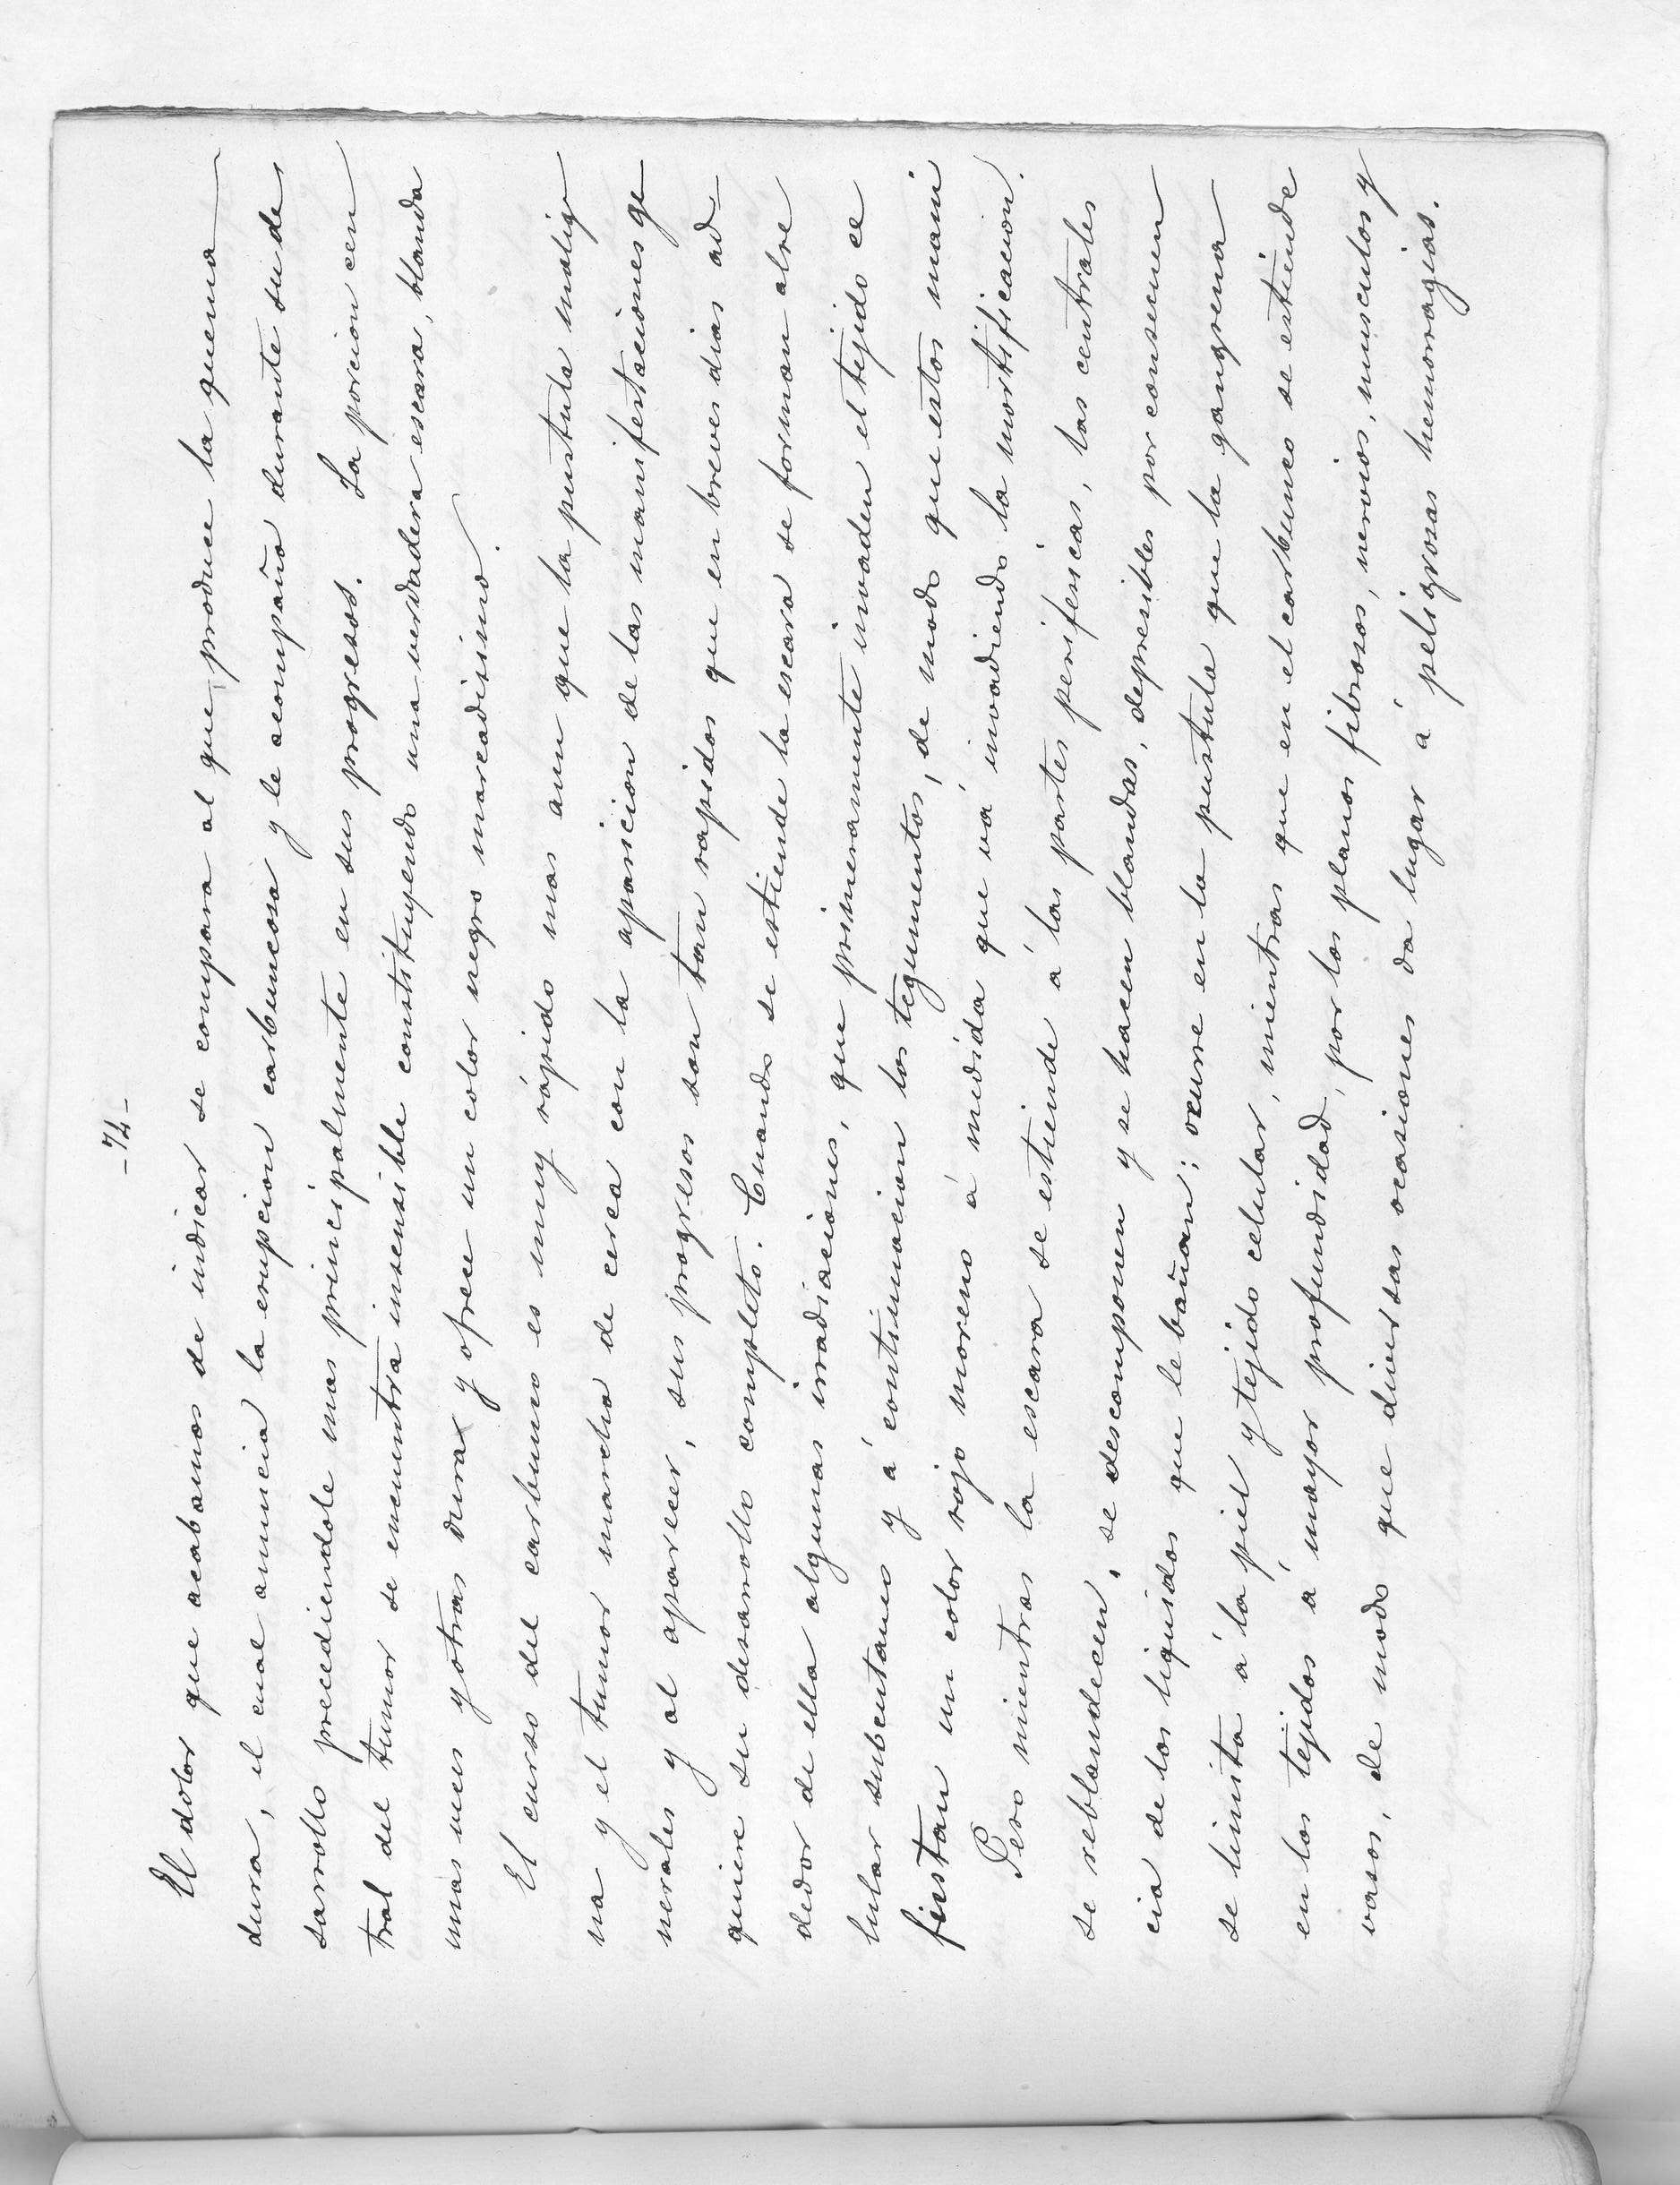 -74-
El dolor que acabamos de indicar se compara al que produce la quema
dura, el cual anuncia la erupcion carbuncosa y le acompaña durante su de
sarrollo precediendole mas principalmente en sus progresos. La porcion cen
tral del tumor se encuentra insensible constituyendo una verdadera escara, blanda
unas veces y otras dura y ofrece un color negro marcadisimo.
El curso del carbunco es muy rápido mas aun que la pustula malig
na y el tumor marcha de cerca con la aparicion de las manifestaciones ge
nerales y al aparecer, sus progresos son tan rapidos que en breves dias ad
quiere su desarrollo completo. Cuando se estiende la escara se forman alre
dedor de ella algunas irradiaciones, que primeramente invaden el tejido ce
lular subcutaneo y á continuacion los tegumentos, de modo que estos mani
fiestan un color rojo moreno á medida que vá invadiendo la mortificacion.
Pero mientras la escara se estiende á las partes perifericas, las centrales
se reblandecen, se descomponen y se hacen blandas, depresibles por consecuen
cia de los liquidos que le bañan; ocurre en la pustula que la gangrena
se limita á la piel y tejido celular, mientras que en el carbunco se estiende
en los tejidos á mayor profundidad, por los planos fibrosos, nervios, musculos y
vasos, de modo que diversas ocasiones da lugar á peligrosas hemorragias.